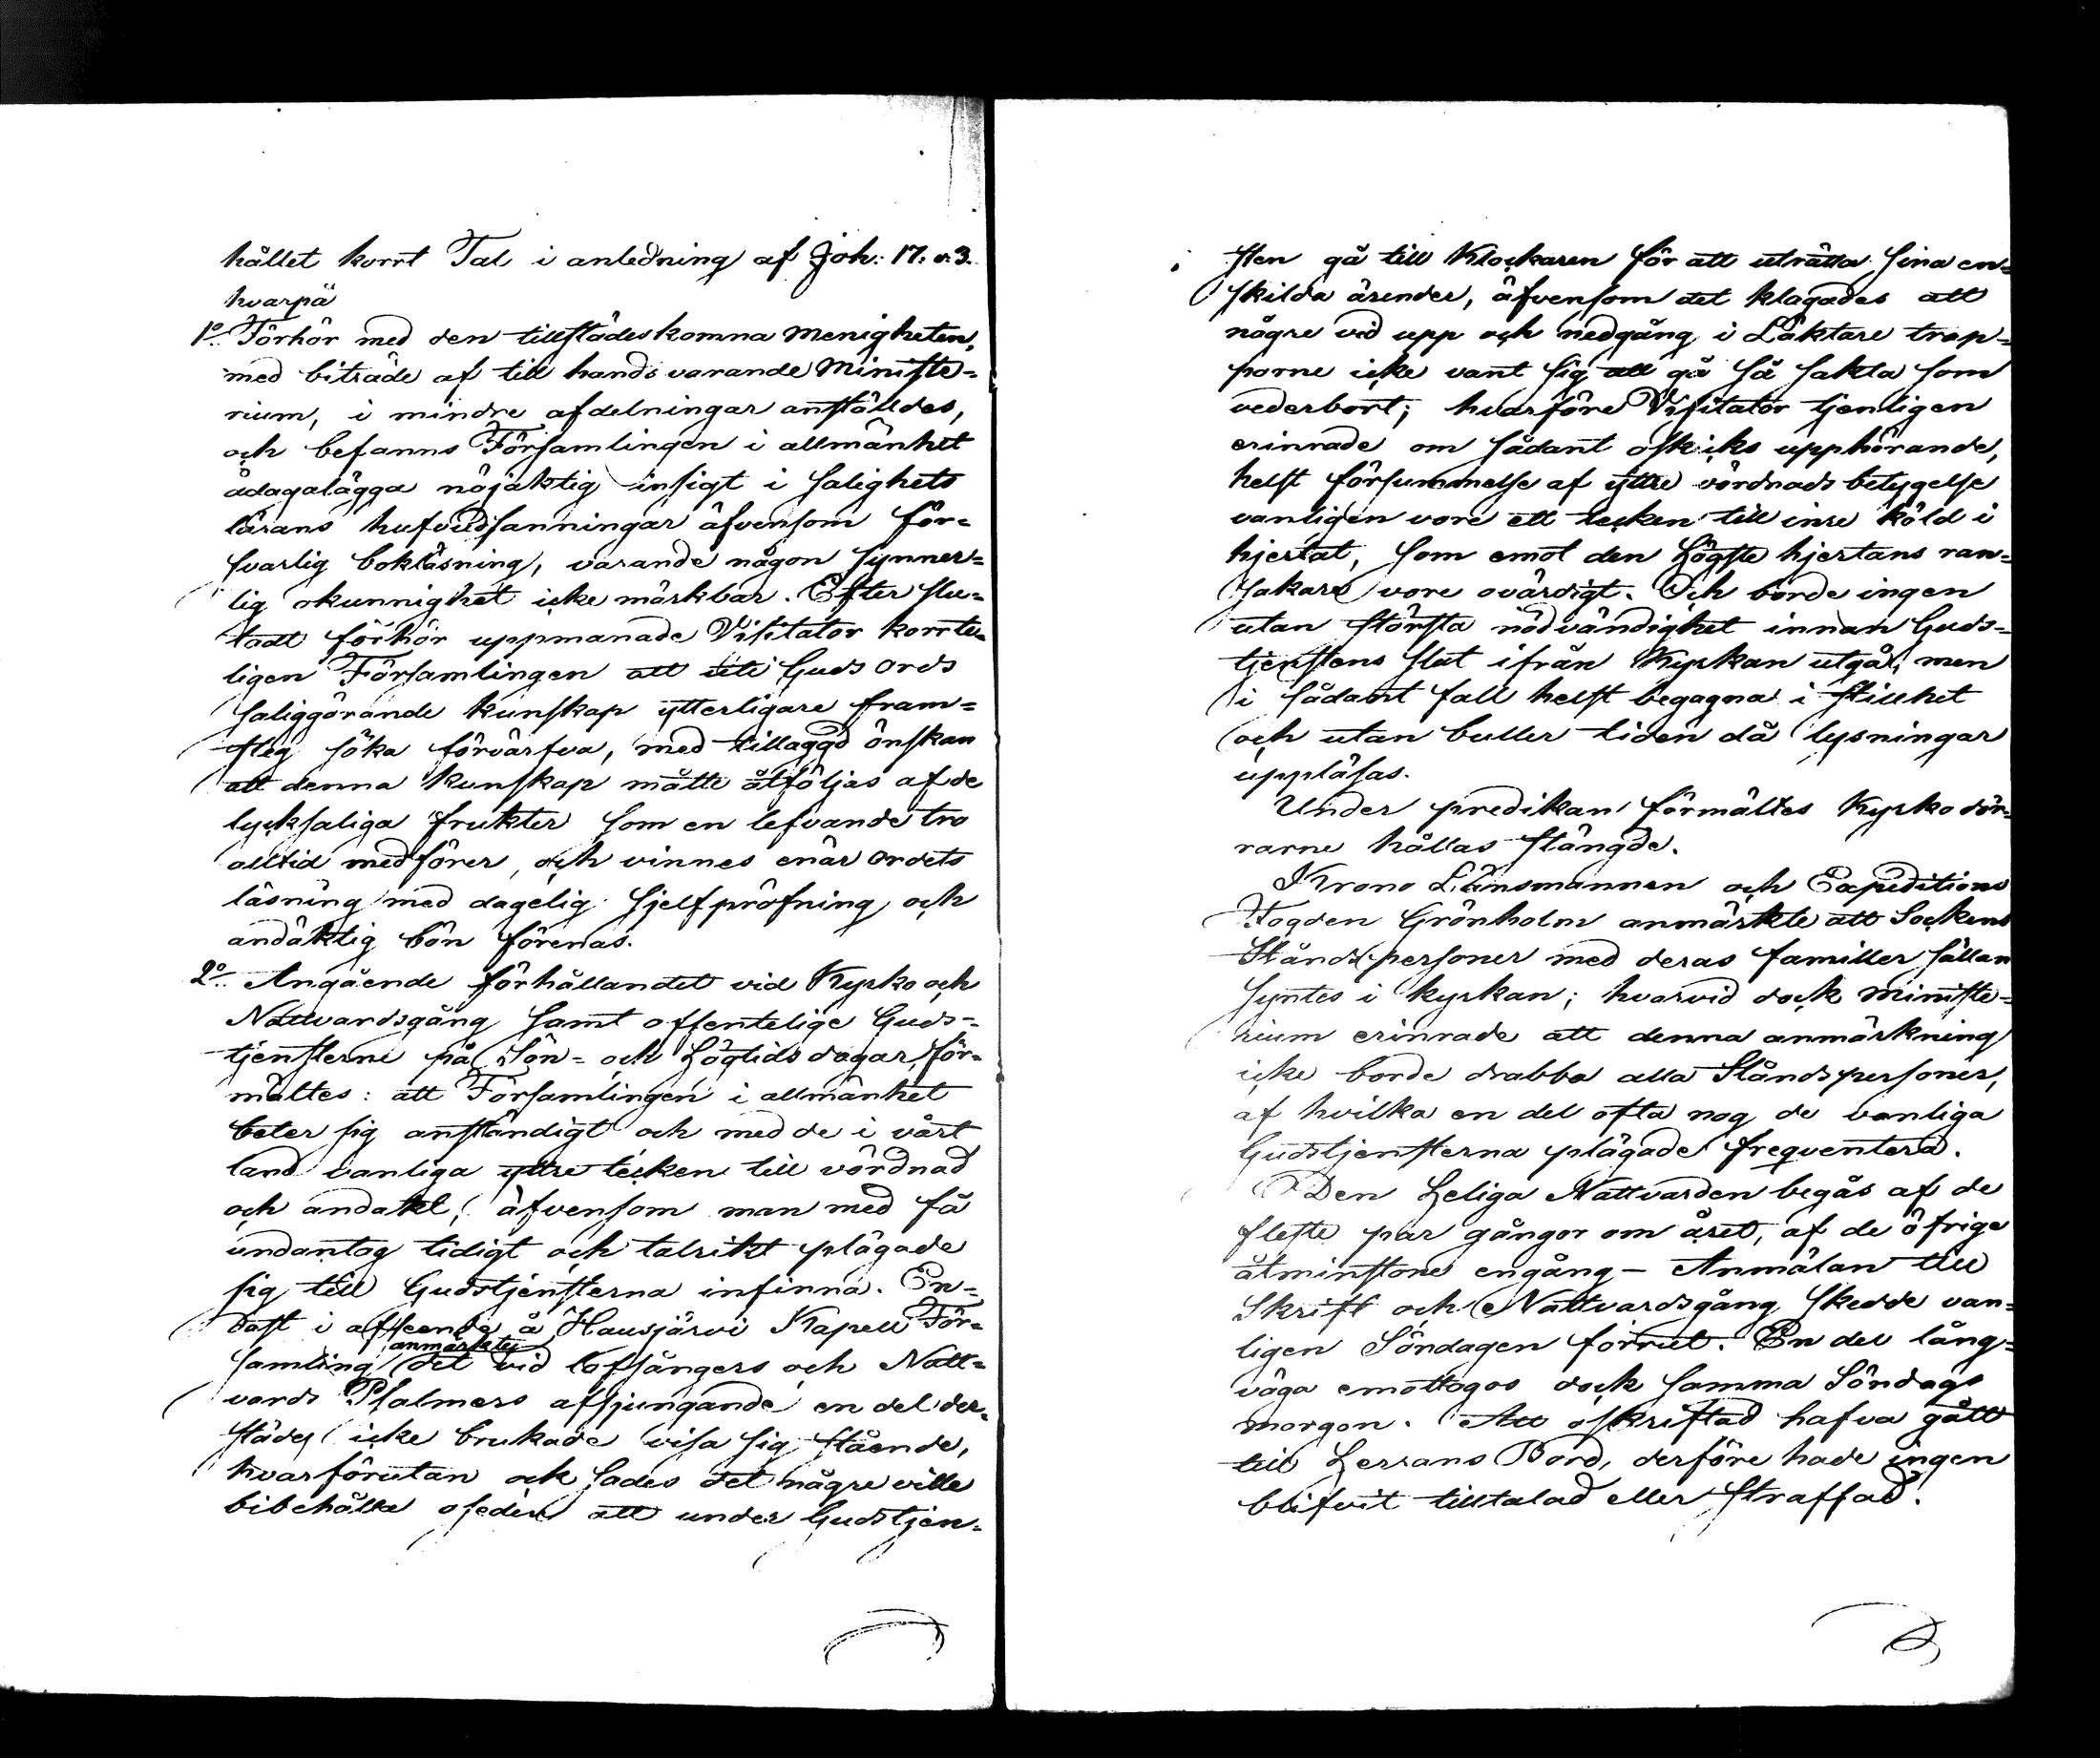 hållet korrt Tal i anledning af Joh: 17. v. 3.
hvarpå
1º Förhör med den tillstädeskomna menigheten,
med biträde af till hands varande Ministe=
rium, i mindre afdelningar anställdes,
och befanns Församlingen i allmänhet
ådagalägga nöjaktig insigt i salighets
lärans hufvudsanningar äfvensom för=
svarlig bokläsning, varande någon synner=
lig okunnighet icke märkbar. Efter slu=
tadt förhör uppmanade Visitator korrte=
ligen Församlingen att uti Guds ords
saliggörande kunskap ytterligare fram=
steg söka förvärfva, med tillaggd önskan
att denna kunskap måtte åtföljas af de
lycksaliga frukter som en lefvande tro
alltid medförer, och vinnes enär ordets
läsning med dagelig sjelfpröfning och
andäktig bön förenas.
2º Angående förhållandet vid Kyrko och
Nattvardsgång samt offentelige Guds=
tjensterne på Sön= och Högtids dagar, för=
mältes: att Församlingen i allmänhet
beter sig anständigt och med de i vårt
land vanliga yttre tecken till vördnad
och andakt, äfvensom man med få
undantag tidigt och talrikt plägade
sig till Gudstjensterna infinna. En=
dast i afseende å Hausjärvi Kapell För=
anmärktes
samling det vid lofsångers och Natt=
vards Psalmers afsjungande en del der=
städes icke brukade visa sig stående,
hvarförutan ock sades det några ville
bibehålla oseden att under Gudstjen=
sten gå till Klockaren för att uträtta sina en=
skilda ärender, äfvensom det klagades att
någre vid upp och nedgång i Läktare trap=
porne icke vant sig att gå så sakta som
vederbort; hvarföre Visitator tjenligen
erinrade om sådant oskiks upphörande,
helst försummelse af yttre vördnads betygelse
vanligen vore ett tecken till inre köld i
hjertat, som emot den Högste hjertans ran=
sakare vore ovärdigt. Och borde ingen
utan största nödvändighet innan Guds=
tjenstens slut ifrån Kyrkan utgå, men
i sådant fall helst begagna i stillhet
och utan buller tiden då lysningar
uppläsas.
Under predikan förmältes Kyrko dör=
rarne hållas stängde.
Krono Länsmannen och Expeditions
Fogden Grönholm anmärkte att Sockens
Ståndspersoner med deras familler sällan
syntes i kyrkan; hvarvid dock Ministe=
rium erinrade att denna anmärkning
icke borde drabba alla Ståndspersoner,
af hvilka en del ofta nog de vanliga
Gudstjensterna plägade frequentera.
Den Heliga Nattvarden begås af de
fleste par gångor om året, af de öfrige
åtminstone engång – Anmälan till
Skrift och Nattvardsgång skedde van=
ligen Söndagen förrut. En del lång=
väga emottogos dock samma Söndags
morgon. Att oskriftad hafva gått
till Herrans Bord, derföre hade ingen
blifvit tilltalad eller straffad.